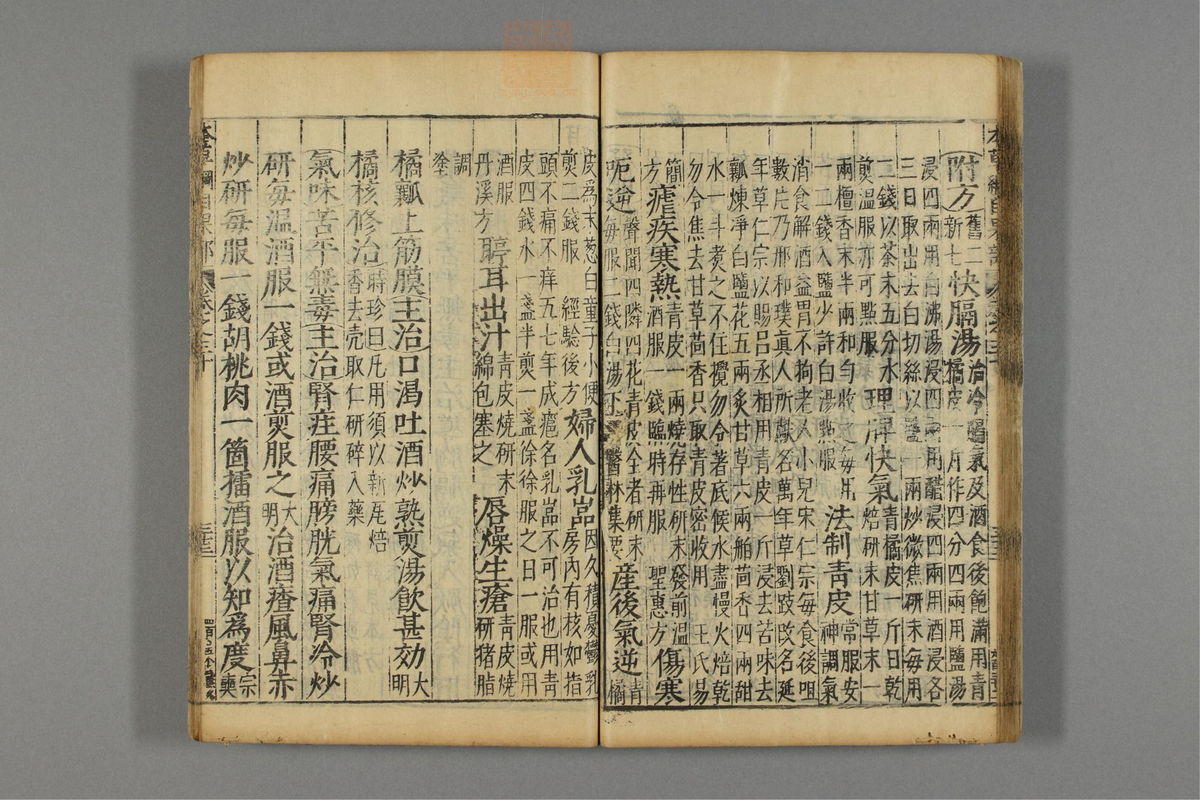 本草綱目果部 卷之三十
附方舊二新七快膈湯治冷膈氣及酒食後飽滿用青橘皮一斤作四分四兩用鹽湯
浸四兩用百沸湯浸四兩用醋浸四兩用酒浸各三日取出去白切絲以鹽一兩炒微焦研末每用
二錢以茶末五分水煎溫服亦可點服理脾快氣青橘皮一斤日乾焙研末甘草末一
兩檀香末半兩和勻收之每用一二錢入鹽少許白湯點服法制青皮常服安神調氣
消食解酒益胃不拘老人小兒宋仁宗每食後咀數片乃邢和璞真人所獻名萬年草劉跂改名延
年草仁宗以賜呂丞相用青皮一斤浸去苦味去瓤煉淨白鹽花五兩炙甘草六兩舶茴香四兩甜
水一斗煑之不住攪勿令著底候水盡慢火焙乾勿令焦去甘草茴香只取青皮密收用 王氏易
簡方瘧疾寒熱青皮一兩燒存性研末發前溫酒服一錢臨時再服 聖惠方傷寒
呃逆聲聞四隣四花青皮全者研末每服二錢白湯下 醫林集要產後氣逆青橘
皮爲末葱白童子小便煎二錢服 經驗後方婦人乳嵓因久積憂鬱乳房內有核如指
頭不痛不痒五七年成瘡名乳嵓不可治也用青皮四錢水一盞半煎一盞徐徐服之日一服或用
酒服丹溪方聤耳出汁青皮燒研末綿包塞之唇燥生瘡青皮燒研猪脂
調塗
橘瓤上筋膜主治口渴吐酒炒熟煎湯飲甚効大明
橘核修治時珍曰凡用須以新瓦焙香去壳取仁研碎入藥
氣味苦平無毒主治腎疰腰痛膀胱氣痛腎冷炒
研每溫酒服一錢或酒煎服之大明治酒㾴風鼻赤
炒研每服一錢胡桃肉一箇擂酒服以知爲度宗奭
本草綱目果部 卷之三十